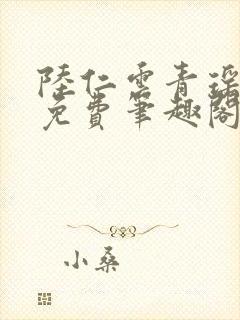 陸仁雲青瑶
免費筆趣閣
小桑